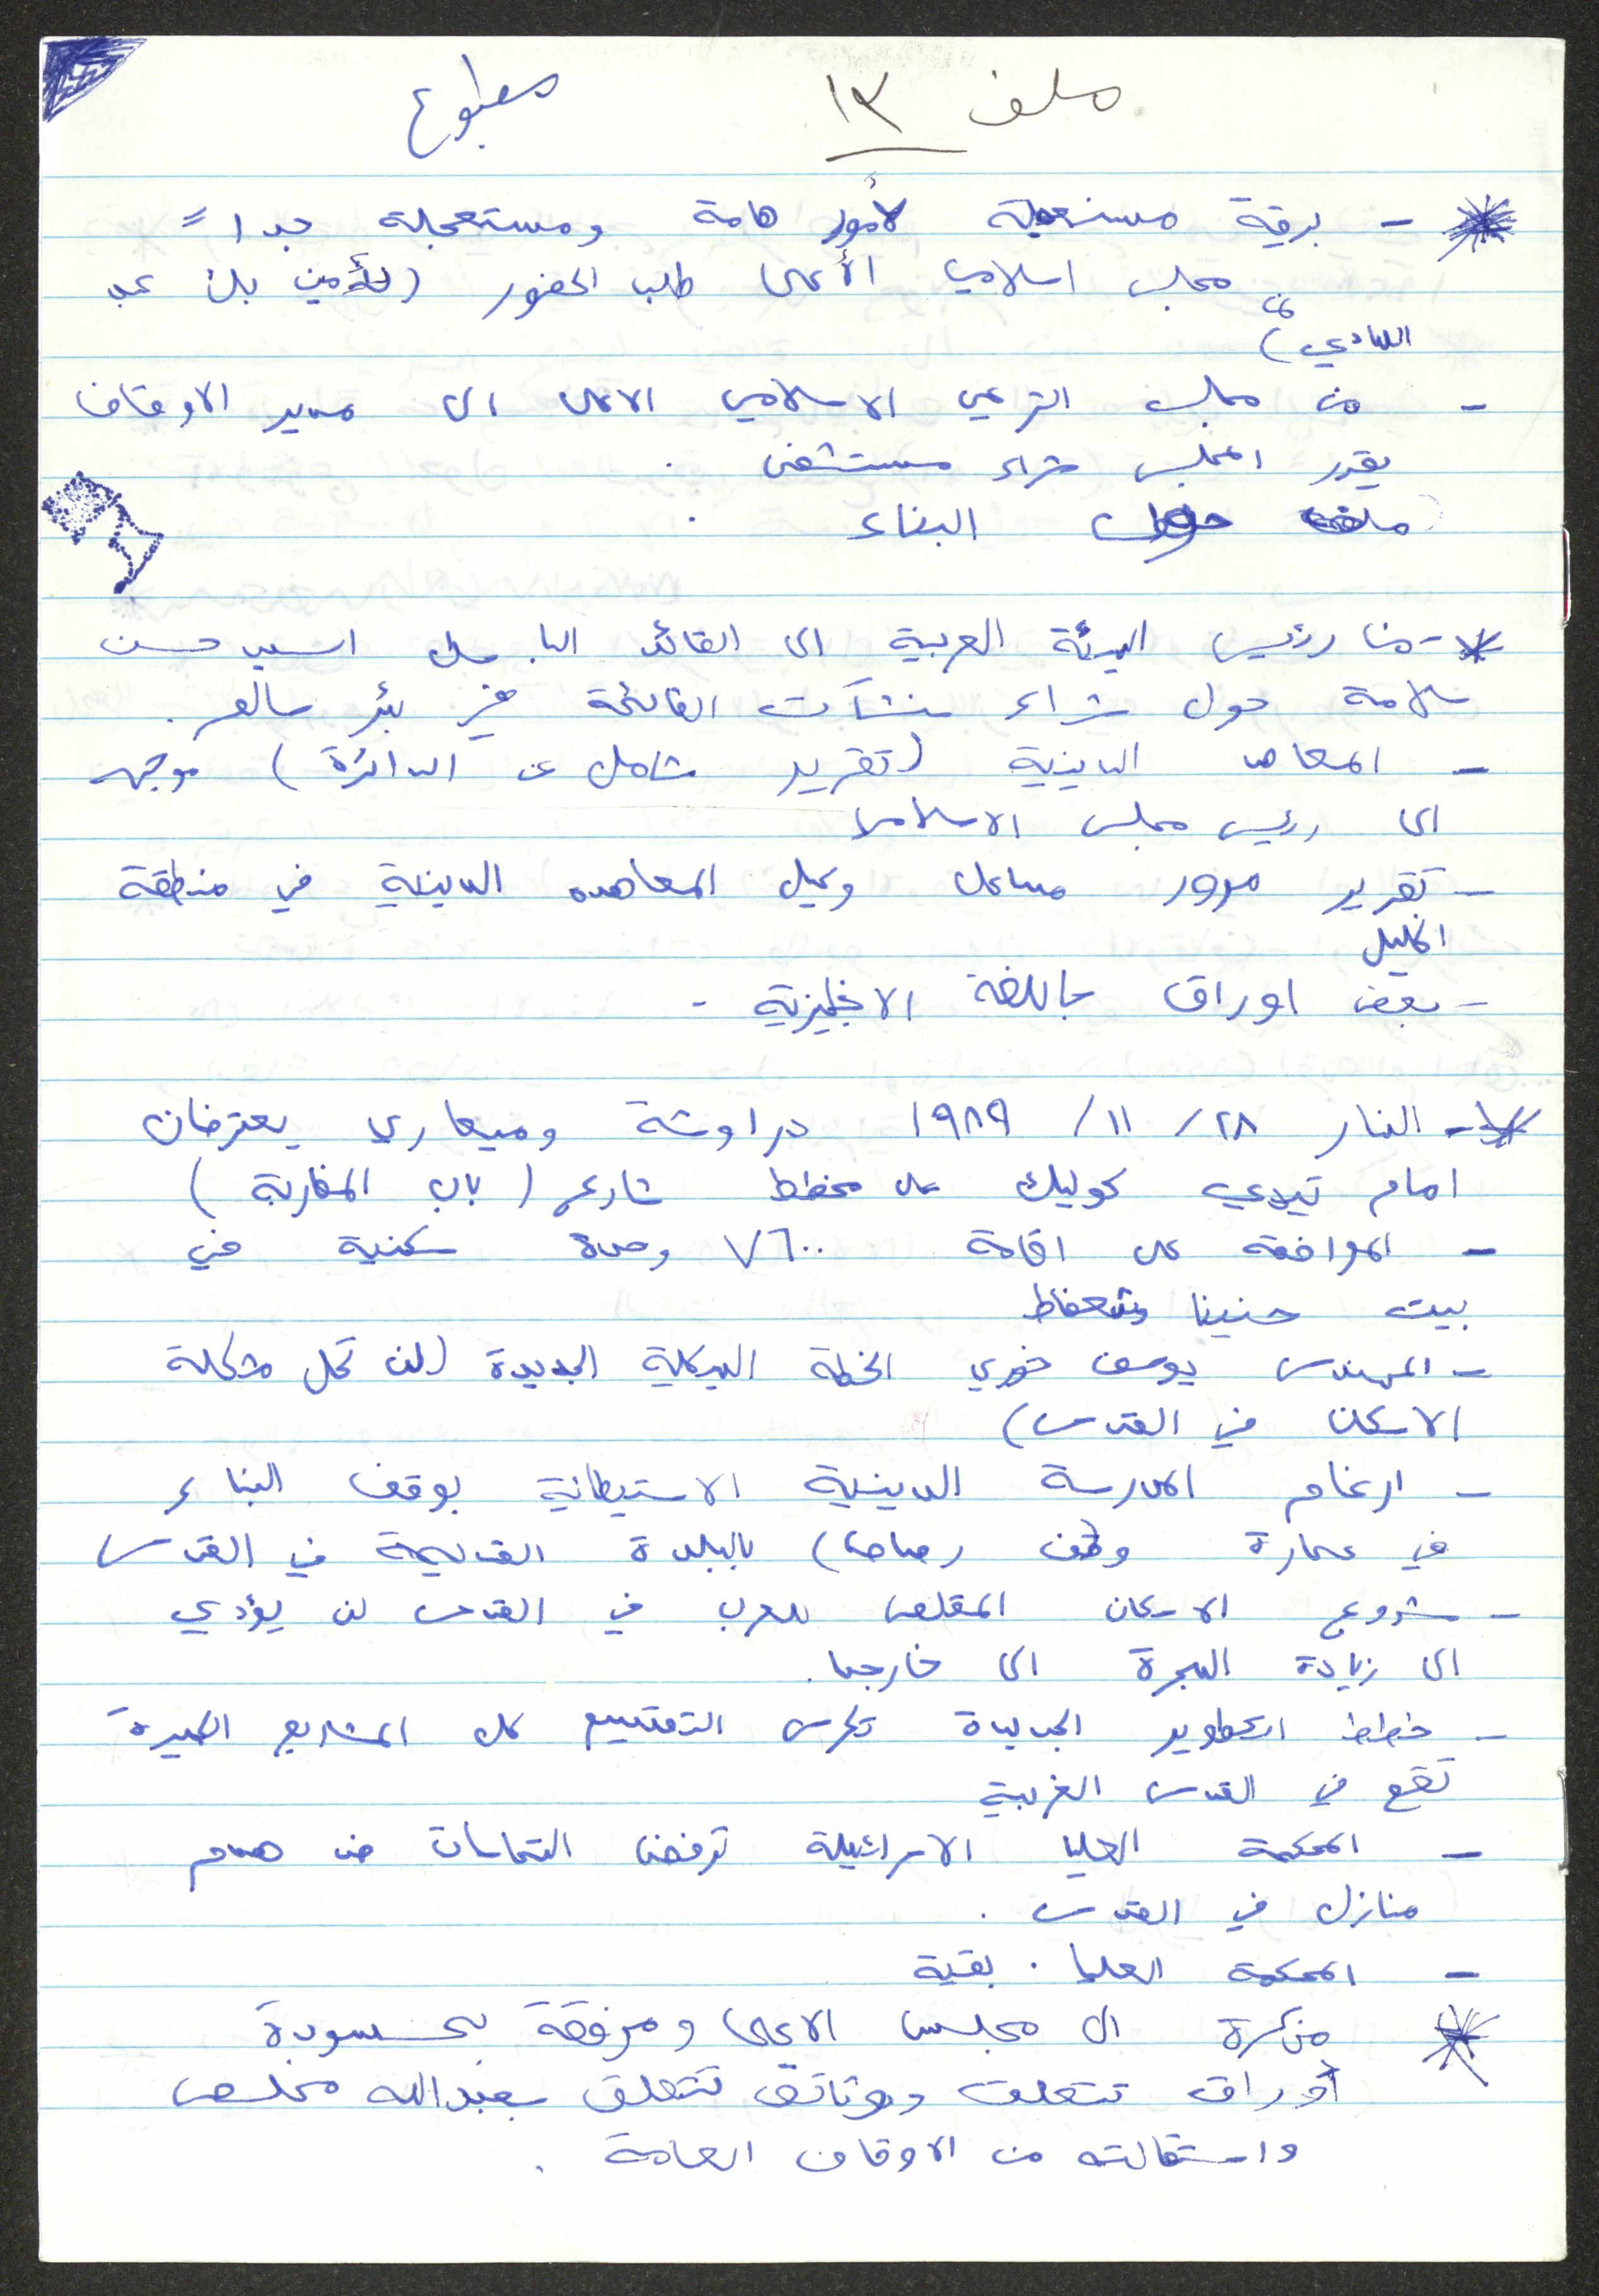 ملف ١٣
مطبوع
- برقية مستعجلة لأمور هامة ومستعجلة جداً
من مجلس اسلامي الأعلى طلب الحضور (لأمين بك عبد
الهادي)
- من مجلس الشرعي الاسلامي الاعلى الى مدير الاوقاف
يقرر المجلس شراء مستشفى .
ملف حول البناء .
- من رئيس الهيئة العربية الى القائد الباسل السيد حسن
سلامة حول شراء منشآت القائمة في بئر سالم .
- المعاهد الدينية (تقرير شامل عن الدائرة) موجهه
الى رئيس مجلس الاسلامي
- تقرير مساعد وكيل المعاهد الدينية في منطقة
الخليل
- بعض اوراق باللغة الانجليزية -
- النار ٢٨/ ١١/ ١٩٨٩ دراوشة وميعاري يعترضان
امام تيدي كوليك على مخطط شارع (باب المغاربة)
- الموافقة على اقامة ٧٦٠٠ وحدة سكنية في
بيت حنينا وشعفاط
- المهندس يوسف خوري الخطة الهيكلية الجديدة (لن تحل مشكلة
الاسكان في القدس)
- ارغام المدرسة الدينية الاستيطانية بوقف البناء
في عمارة وقف رصاص) بالبلدة القديمة في القدس
- مشروع الاسكان المقلص للعرب في القدس لن يؤدي
الى زيادة الهجرة الى خارجها.
- خطط التطوير الجديدة تكرس التقسيم كل المشاريع الكبيرة
تقع في القدس الغربية
- المحكمة العليا الاسرائيلية ترفض التماسات ضد هدم
منازل في القدس .
- المحكمة العليا . بقية
مذكرة الى مجلس الاعلى ومرفقة بمسودة
أوراق تتعلق ووثائق تتعلق بعبدالله مخلص
واستقالته من الاوقاف العامة .